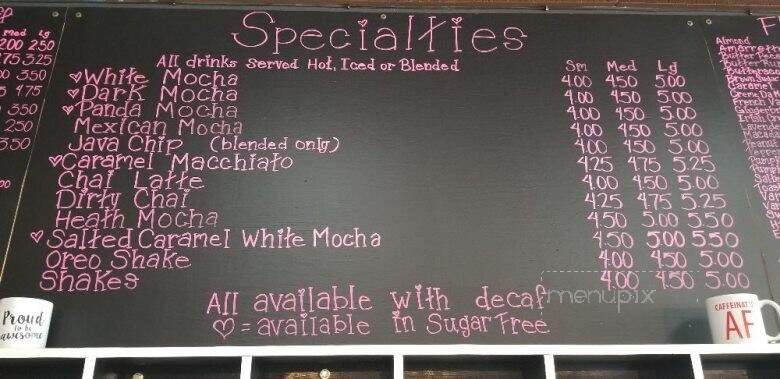 Specialties
All drinks Served Hot, Iced or Blended
Sm Med Lg
♥White Mocha 4.00 4.50 5.00
♥Dark Mocha 4.00 4.50 5.00
♥Panda Mocha 4.00 4.50 5.00
Mexican Mocha 4.00 4.50 5.00
Java Chip (blended only) 4.00 4.50 5.00
♥Caramel Macchiato 4.25 4.75 5.25
Chai Latte 4.00 4.50 5.00
Dirty Chai 4.25 4.75 5.25
Heath Mocha 4.50 5.00 5.50
♥Salted Caramel White Mocha 4.50 5.00 5.50
Oreo Shake 4.00 4.50 5.00
Shakes 4.00 4.50 5.00
All available with decaf
♥ = available in Sugar Free
menupix
Med Lg
2.00 2.50
2.75 3.25
3.50
4.75
3.50
2.50
3.50
Almond
Proud
to be
awesome
CAFFEINATED
AF